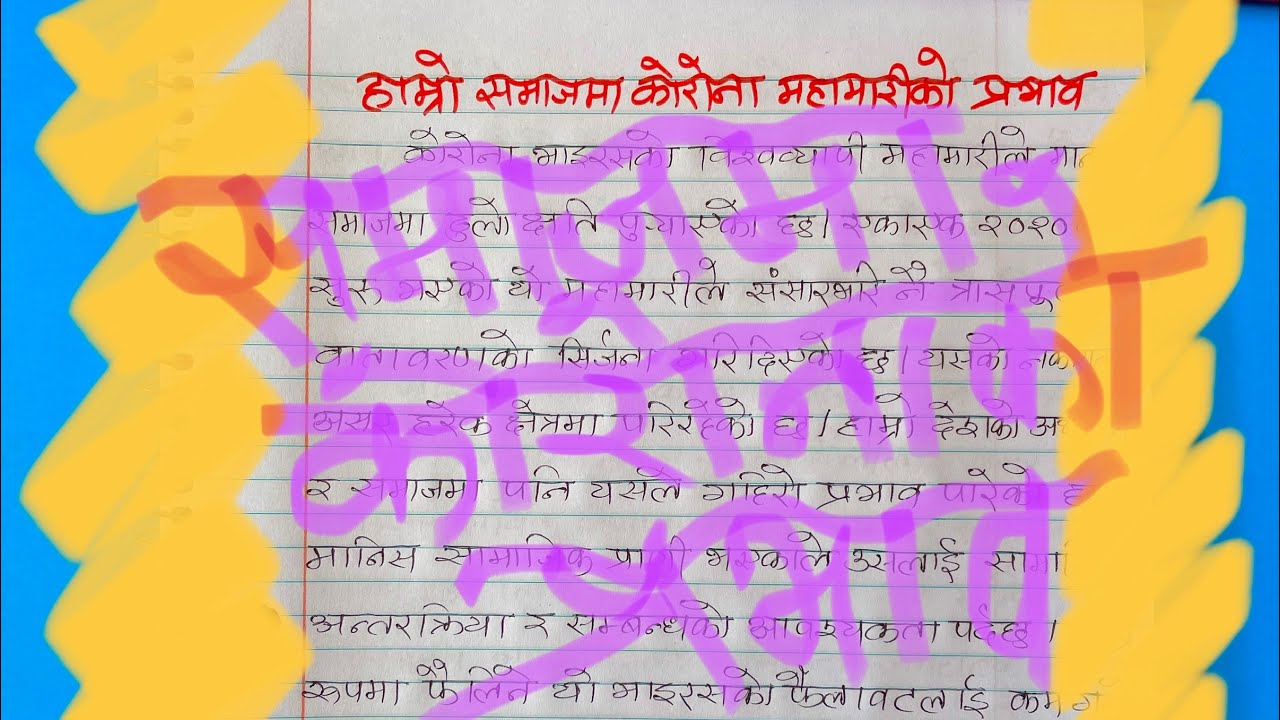 हाम्रो समाजमा कोरोना महामारीको प्रभाव
कोरोना भाइरसको विश्वव्यापी महामारीले
समाजमा ठुलो क्षति पुऱ्याएको छ। एकाएक २०२०
सुरु भएको यो महामारीले संसारभरि नै त्रासपूर्ण
वातावरणको सिर्जना गरिदिएको छ। यसको
असर हरेक क्षेत्रमा परिरहेको छ। हाम्रो देशको
र समाजमा पनि यसले गहिरो प्रभाव पारेको
मानिस सामाजिक प्राणी भएकाले उसलाई
अन्तरक्रिया र सम्बन्धको आवश्यकता पर्दछ।
रूपमा फैलिने यो भाइरसको फैलावटलाई कम
समाजमा
कोरोनाको
प्रभाव